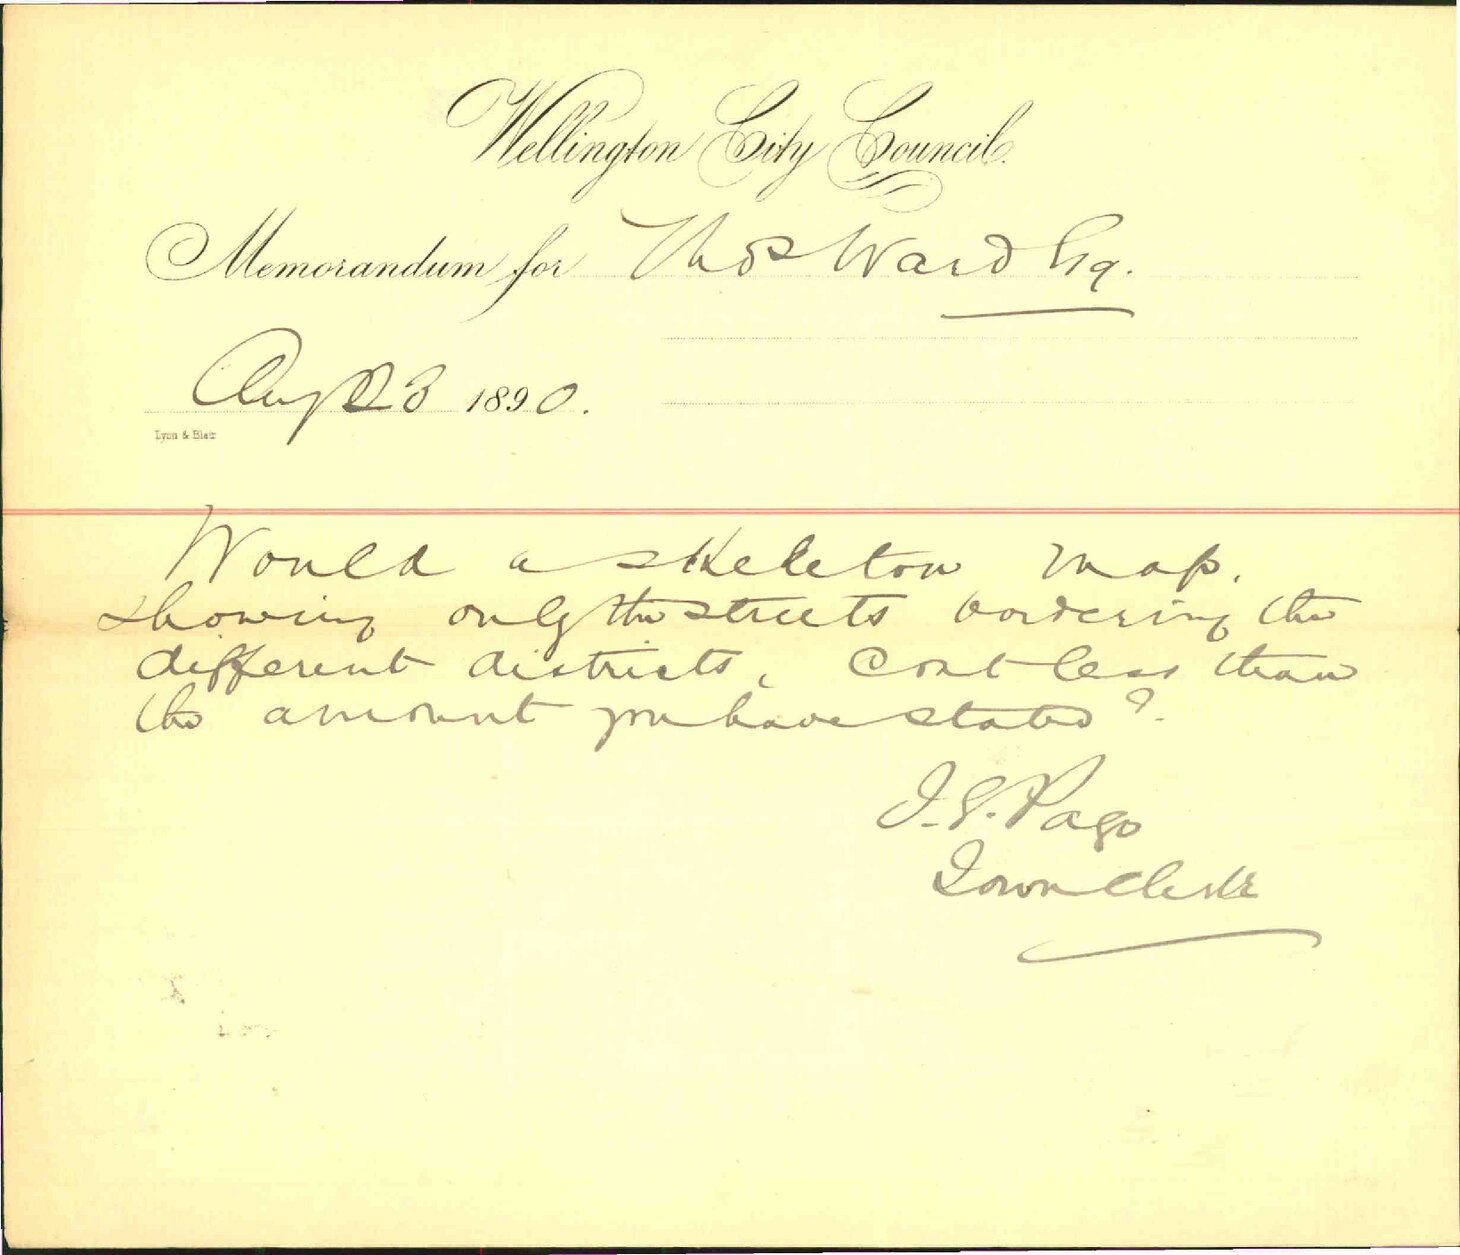 Wellington City Council.
Memorandum for Thos Ward Esq.
Aug 23 1890.
Lyon & Blair
Would a skeleton map,
showing only the streets bordering the
different districts, cost less than
the amount you have stated?
J.G. Page
Town Clerk